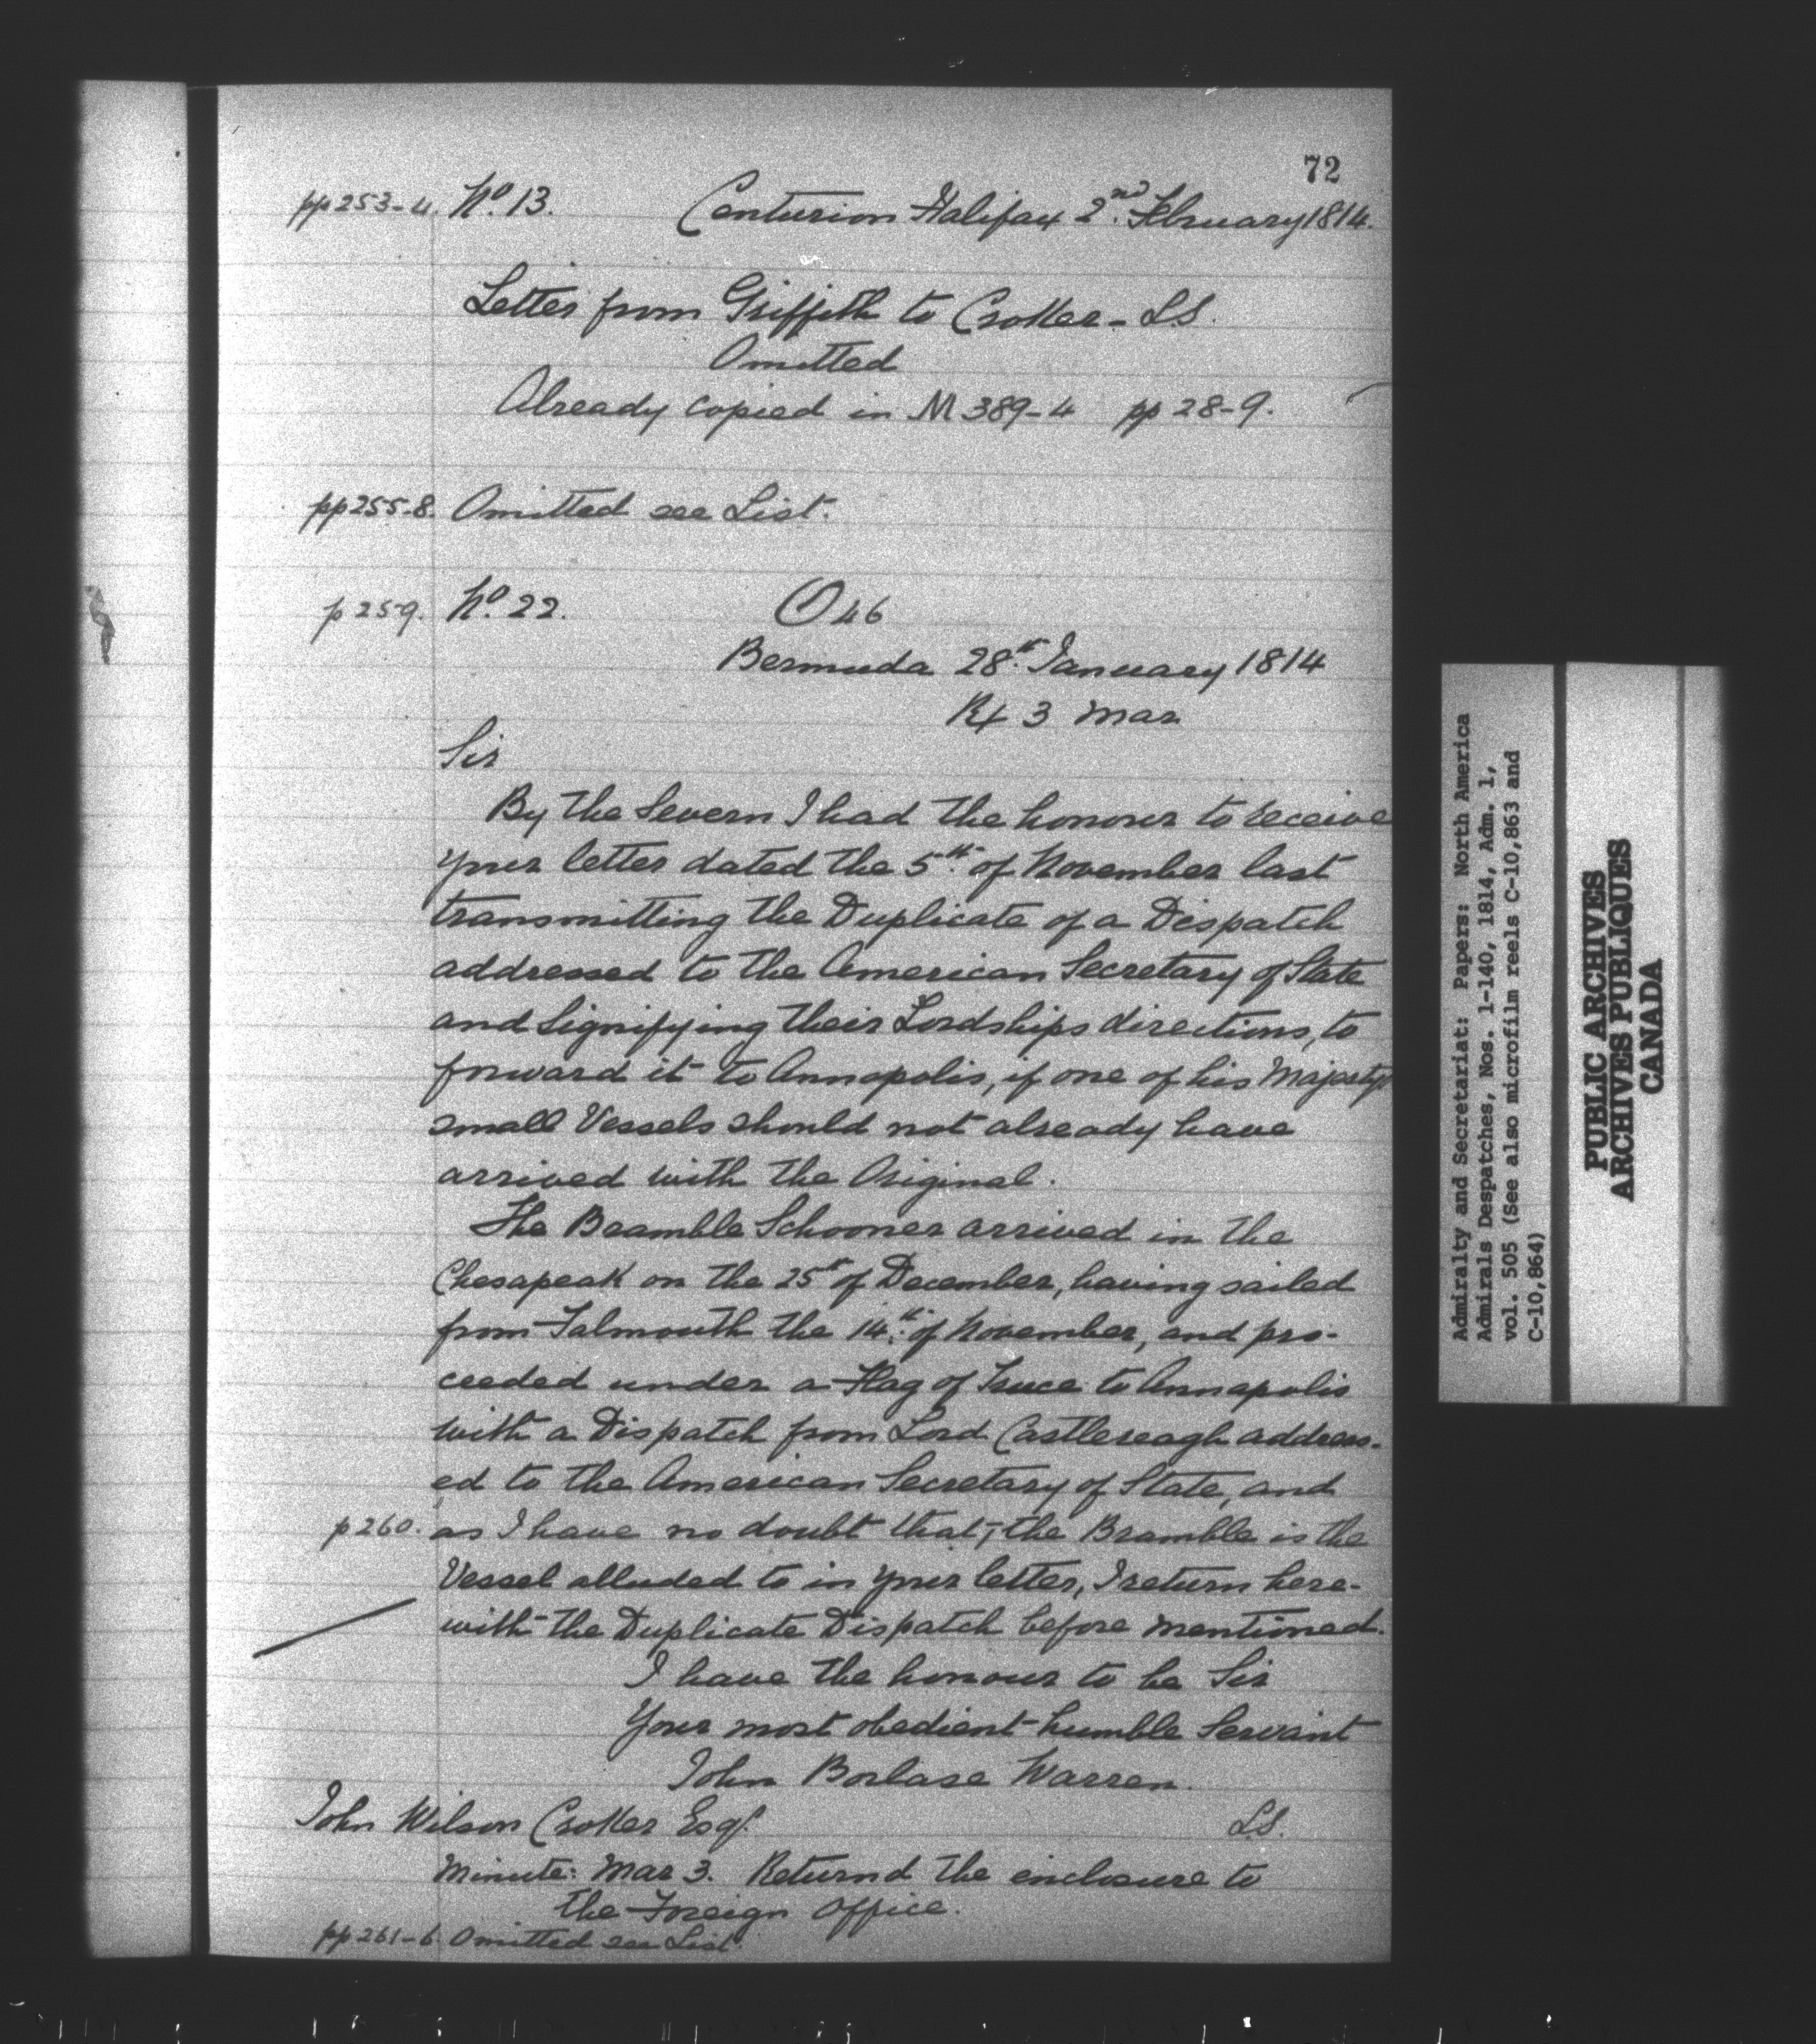 72
pp 253-4. No. 13. Centurion Halifax 2nd. February 1814.
Letter from Griffith to Croker - LS.
Omitted
Already copied in M 389-4 pp 28-9.
pp 255-8. Omitted see List.
p 259. No. 22. 46
Bermuda 28th. January 1814
Rx 3 Mar
Sir
By the Severn I had the honour to receive
your letter dated the 5th. of November last
transmitting the Duplicate of a Dispatch
addressed to the American Secretary of State
and Signifying their Lordships directions, to
forward it to Annapolis, if one of his Majestys
small Vessels should not already have
arrived with the Original.
The Bramble Schooner arrived in the
Chesapeak on the 25th of December, having sailed
from Falmouth the 14th. of November, and pro-
ceeded under a Flag of Truce to Annapolis
with a Dispatch from Lord Castlereagh address-
ed to the American Secretary of State, and
p 260. as I have no doubt that, the Bramble is the
Vessel alluded to in your letter, I return here-
with the Duplicate Dispatch before mentioned.
I have the honour to be Sir
Your most obedient humble Servant
John Borlase Warren.
John Wilson Croker Esqr. LS.
Minute: Mar 3. Returnd the enclosure to
the Foreign Office.
pp 261-6. Omitted see List.
Admiralty and Secretariat: Papers: North America
Admirals Despatches, Nos. 1-140, 1814, Adm. 1,
vol. 505 (See also microfilm reels C-10,863 and
C-10,864)
PUBLIC ARCHIVES
ARCHIVES PUBLIQUES
CANADA